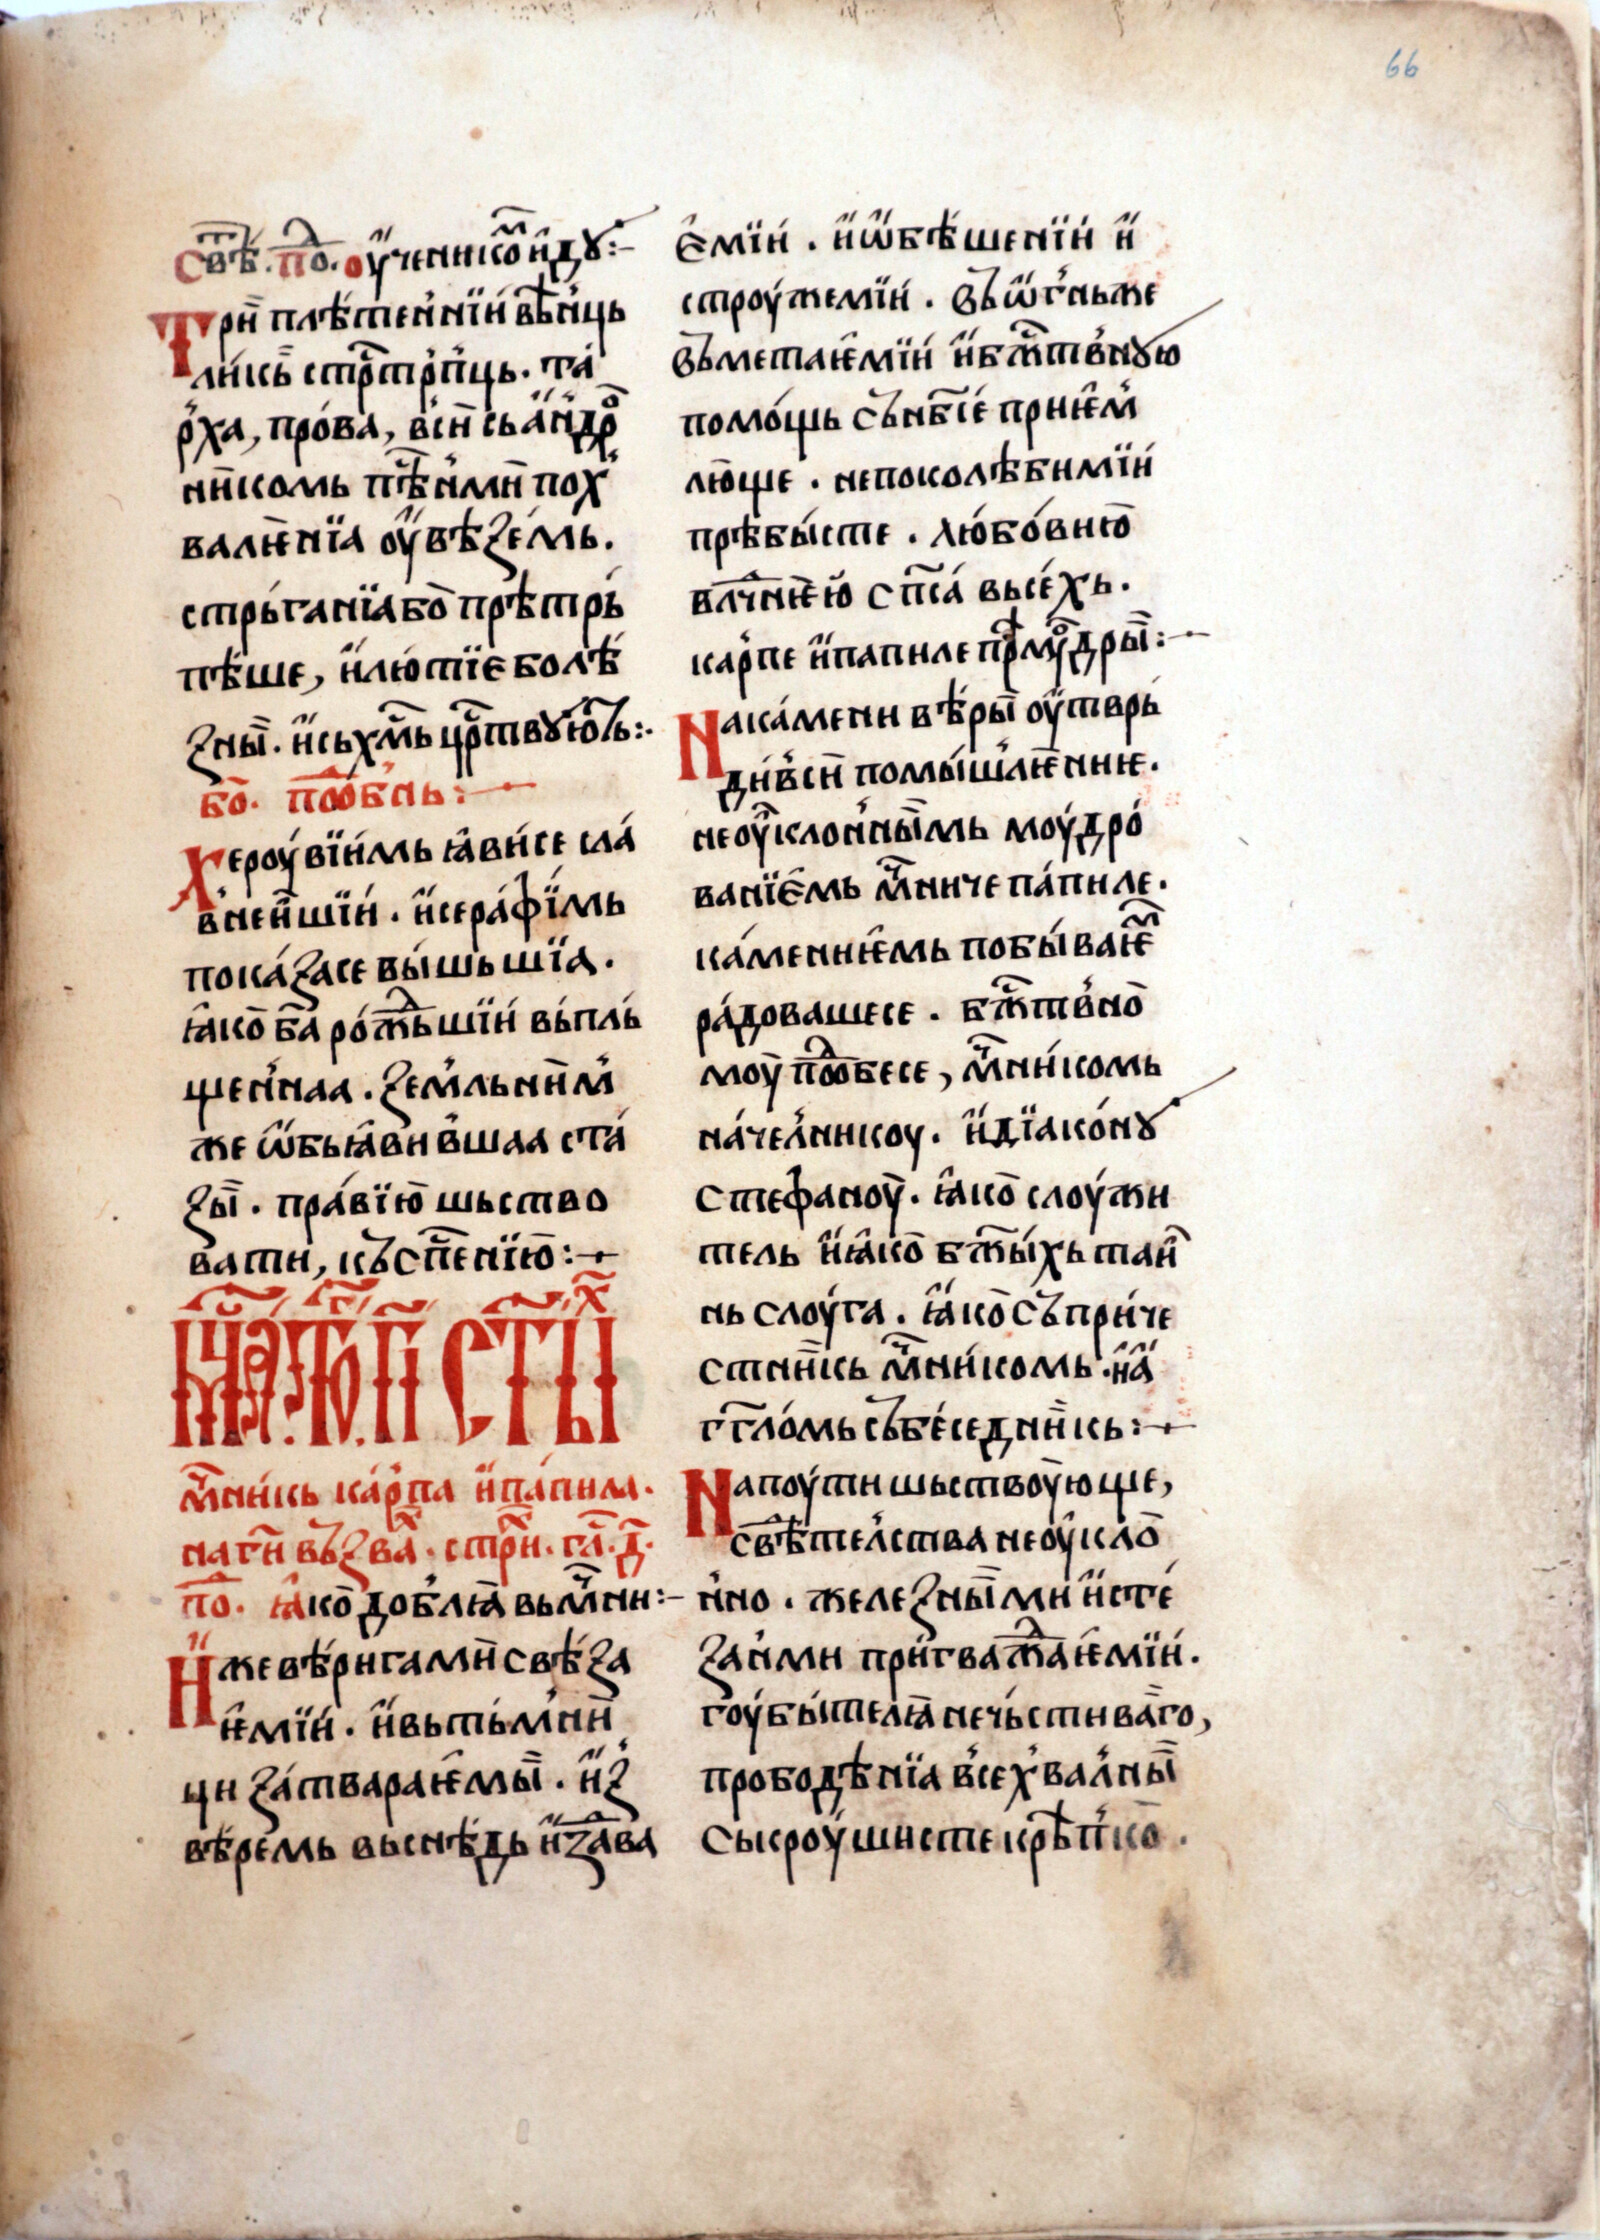 66
свѣ҃. по҃. оу҆ченикѡ҃ и҆дꙋ:–
Три҃ плѣте́ннїи вѣне́ць
ли́кь стр҃тръ́пць. та
ра́ха, про́ва, в҆си҃ сь а҆ндро
ни҃комь пѣ҃н҆ми҃ пох
валѥ҃нїа оу҆вѣзе́мь.
стръ́ганїа бо҃ прѣтрь
пѣ́ше, и҆лю́тїе болѣ́
зны҃. и҆ сь хм҃ь цр҃твꙋ́ють:.
бо҃. поⷣбнь:—
Хероуві́имь ꙗ҆ви́се сла́
в҆не́ишїи. и҆серафї́мь
пока́засе вы́шьшїа.
ꙗ҆ко҃ ба҃ ро́ждьшїи вь́пль
ще́ннаа. зем҆льни҃м
же ѡ҆бьꙗ҆ви́вшаа ста
зы҃. пра́вїю҃ шьство
вати, къ сп҃се́нїю҃:–
Мⷭ҇ца. то҃. г҃і ст҃ыⷯ
мⷱ҇ни́кь ка́рпа и҆па́пила.
на гⷭ҇и въз̾ва́ⷯ. стр҃и. гл҃. д҃.
по҃. ꙗ҆ко҃ до́блꙗ вь мⷱ҇ни:–
И҆же вѣ́ригами҃ свѣ́за
ѥ҆мїи. и҆вьть́м҆ни҃
ци за́твараѥ҆мы҃. и҆ з
вѣ́ремь вьснѣ́дь и҆ зⷣава
є҆мїи. и҆ѡ҆бѣ́шенїи и҆
строу́жемїи. въ ѡ҆гнь же
въметаѥ҆мїи и҆бжⷭ҇тв҆нꙋю
помо́щь съ нб҃се́ прїѥ҆м
лю҃ще. непоколѣ́бимїи
прѣбы́сте. лю́бо́вню҃
влⷣчнѥ҃ю сп҃са́ высе́хь.
ка́рпе и҆папиле прⷣѣмоу́дры҃:–
На ка́мени вѣ́ры҃ оу҆тврь
ди́вси҃ помы́шлѥ҃ниѥ.
не оу҆кло́нны҃мь моу́дро
ванїе҆мь мⷱ҇ниче па́пиле.
ка́менниѥ҆мь побы́ваѥⷨ
ра́довашесе. бжⷭ҇тв҆но҃
моу҃ поⷣбесе, мⷱ҇ни́комь
на́чел҆никоу. и҆дїако́нꙋ
Стефаноу҃. ꙗ҆ко҃ слоу́жи
тель и҆ꙗ҆ко҃ бжⷭ҇ты́хь таи҃
нь слоу́га. ꙗ҆ко҃ съпри́че
стни҃кь мⷱ҇ни́комь. и҆а҆
гг҃ло́мь съ бе́седни҃кь:–
На поу́ти шьствоу҃юще,
свⷣѣтел҆ства не оу҆кло҃
н҆но. желе́зны҃ми и҆сте́
за́н҆ми при́гваждаѥ҆мїи.
гоу́бы́телꙗ нечь́стива҃го,
прободѣ́нїа в҆сех҆вал҆ны҃
сыкроу́шисте крѣ́пко҃.